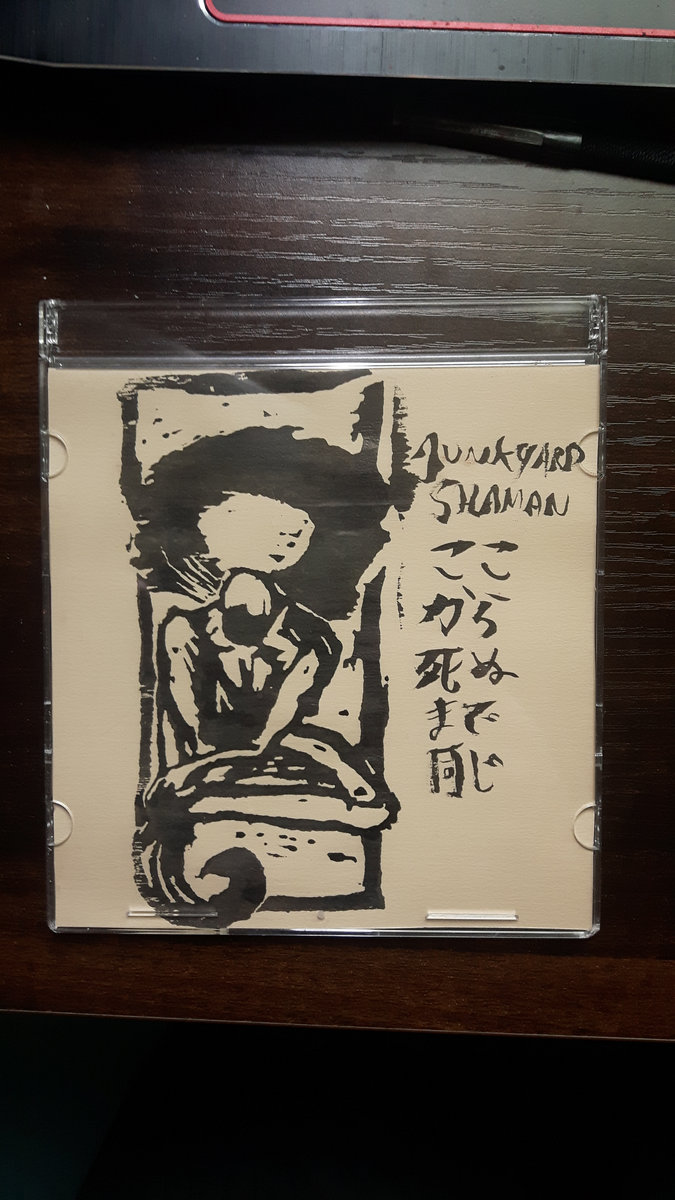 JUNKYARD
SHAMAN
ここ
から
死ぬ
まで
同じ